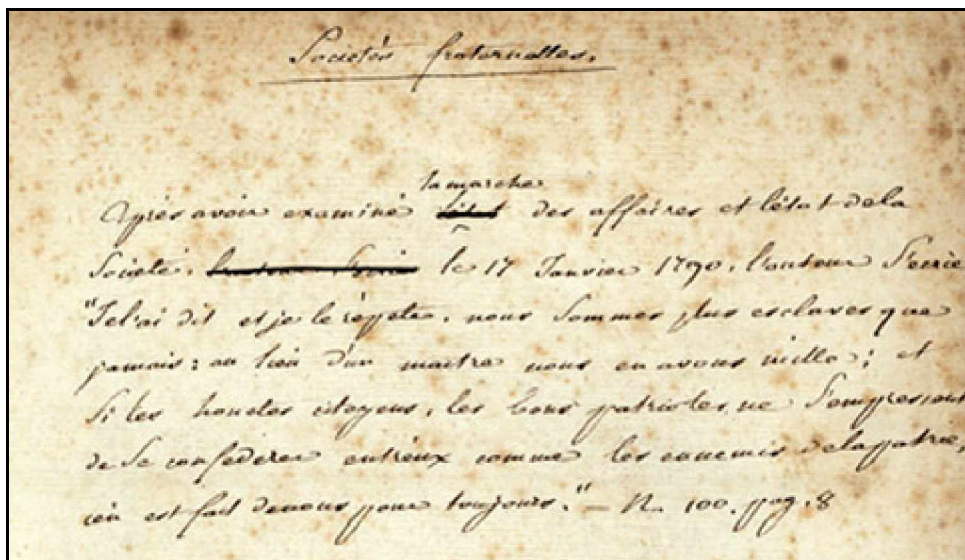 Societés fraternelles.
la marche
Après avoir examiné des affaires et l'état de la
Societé, le 17 Janvier 1790, l'auteur s'écrie
"Je l'ai dit et je le répète, nous sommes plus esclaves que
jamais: au lieu d'un maitre nous en avons mille; et
Si les honetes citoyens, les bons patriotes, ne s'empressent
de Se confédérer entr'eux comme les ennemis de la patrie,
c'en est fait de nous pour toujours." — N. 100. pag. 8